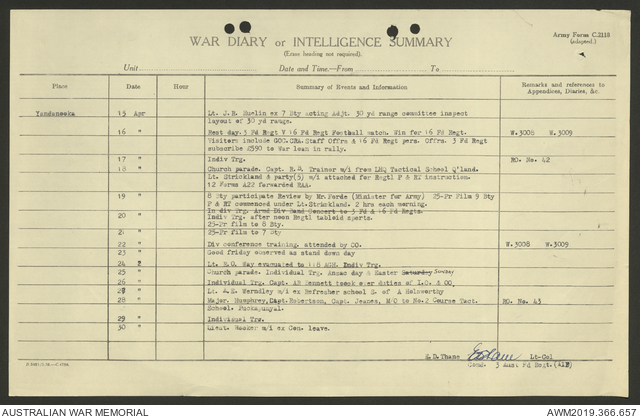 WAR DIARY or INTELLIGENCE SUMMARY
(Erase heading not required).
Army Form C.2118
(adapted.)
Unit
Date and Time.—From
To
Place Date Hour Summary of Events and Information Remarks and references to Appendices, Diaries, &c.
Yandaneeka 15 Apr Lt. J.E. ex 7 Bty acting Adjt. 30 yd range committee inspect
layout of 30 yd range.
16 " Rest day. 3 Fd Regt V 16 Fd Regt Football match. Win for 16 Fd Regt. W.3008 W.3009
Visitors include GOC.CRA.Staff Offrs & 16 Fd Regt pers. Offrs. 3 Fd Regt
subscribe £590 to War loan in rally.
17 " Indiv Trg. RO. No. 42
18 " Church parade. Capt. R.D. Trainer m/i from LHQ Tactical School Q'land.
Lt. Strickland & party(5) m/i attached for Regtl P & RT instruction.
12 Forms A22 forwarded RAA.
19 " 8 Bty participate Review by Mr.Forde (Minister for Army) 25-Pr Film 9 Bty
P & RT commenced under Lt.Strickland. 2 hrs each morning.
In div Trg. Armd Div Band Concert to 3 Fd & 16 Fd Regts.
20 " Indiv Trg. after noon Regtl tabloid sports.
25-Pr film to 8 Bty.
21 " 25-Pr film to 7 Bty
22 " Div conference training. attended by CO. W.3008 W.3009
23 " Good friday observed as stand down day
24 " Lt. R.O. Way evacuated to 118 AGH. Indiv Trg.
25 " Church parade. Individual Trg. Anzac day & Easter Saturday Sunday
26 " Individual Trg. Capt. AR Bennett took over duties of L.O. & CO.
27 " Lt. A.E. Werndley m/i ex Refresher school S. of A Holsworthy
28 " Major. Humphrey, Capt. Robertson, Capt. Jeanes, M/O to No.2 Course Tact. RO. No. 43
School. Puckapunyal.
29 " Individual Trg.
30 " Lieut. Hooker m/i ex Gen. leave.
S.D. Thane Lt-Col
Comd. 3 Aust Fd Regt. (AIF)
AUSTRALIAN WAR MEMORIAL
AWM2019.366.657